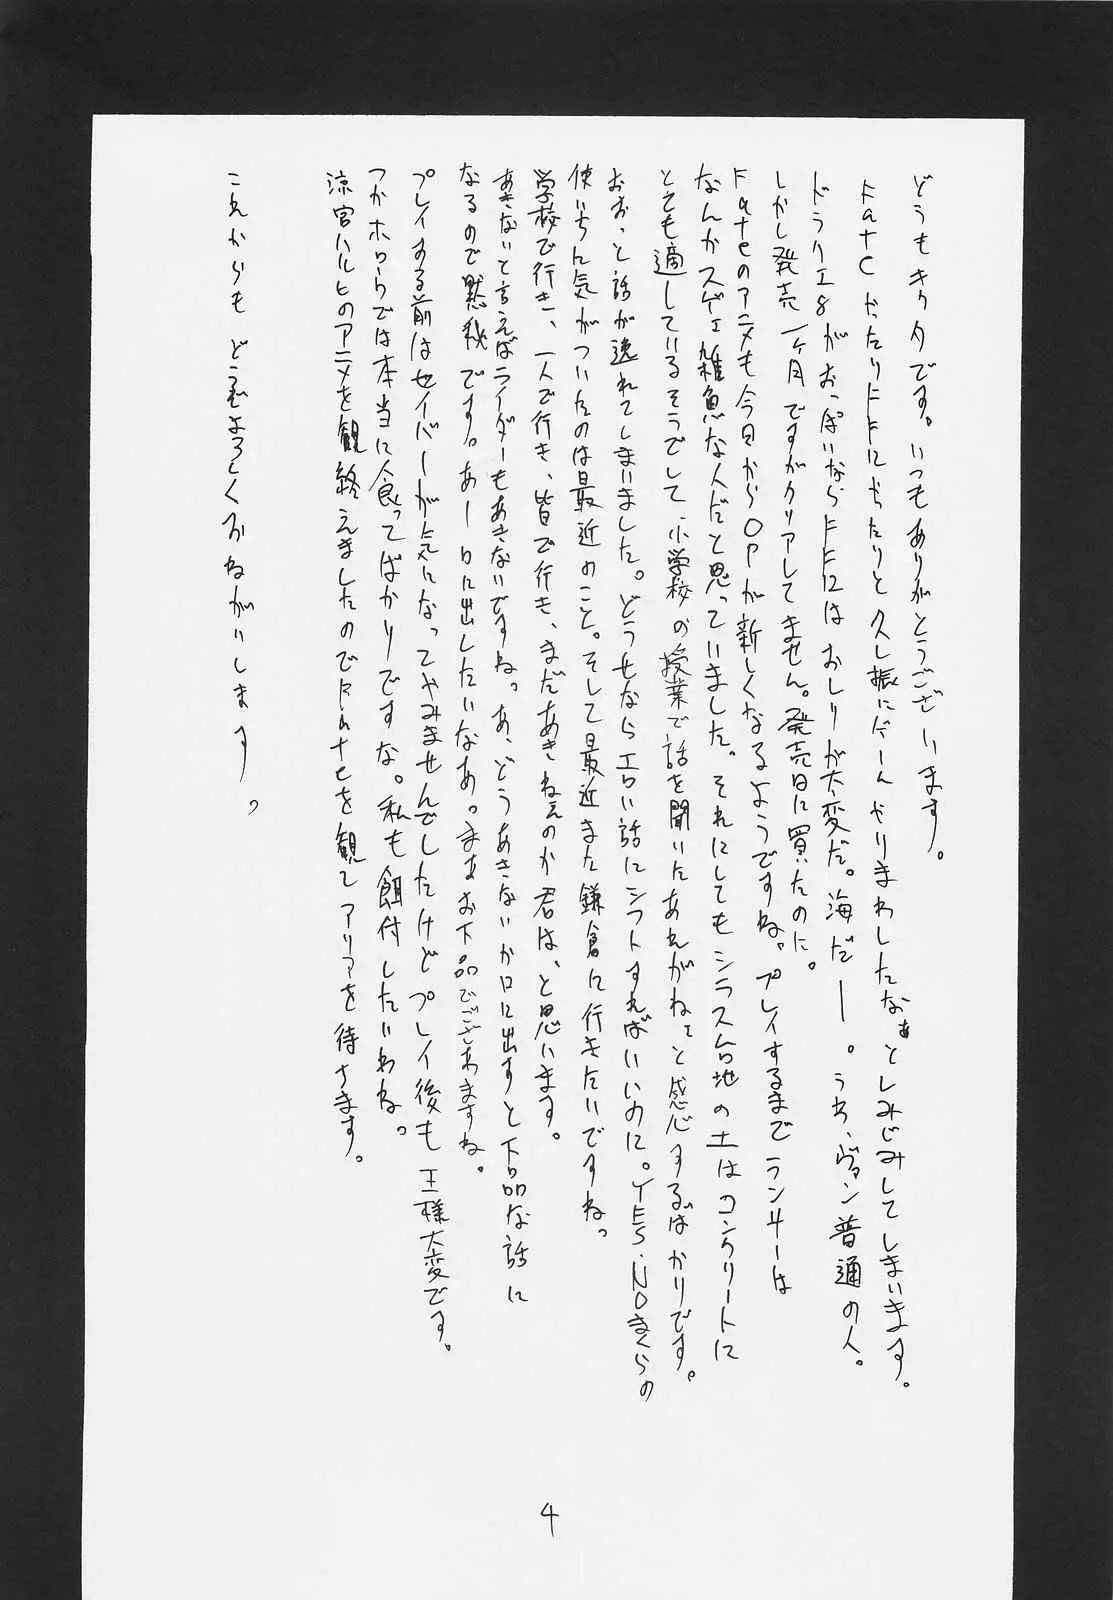 どうもキクタです。いつもありがとうございます。
Fateやったり FFにやったりと久し振にゲームやりまわしたなぁとしみじみしてしまいます。
ドラクエ8がおっぱいならFF12はおしりが大変だ。海だー。うわ、ヴァン普通の人。
しかし発売一ヶ月ですがクリアしてません。発売日に買ったのに。
Fateのアニメも今日からOPが新しくなるようですね。プレイするまでランサーは
なんかスゲェ雑魚な人だと思っていました。それにしてもシラス台地の土はコンクリートに
とても適しているそうでして、小学校の授業で話を聞いたあれがねぇと感心するばかりです。
おおっと話が逸れてしまいました。どうせならエロい話にシフトすればいいのに。YES・NOまくらの
使いみちに気がついたのは最近のこと。そして最近また鎌倉に行きたいですね。
学校で行き、一人で行き、皆で行き、まだあきねぇのか君は、と思います。
あきないと言えばライダーもあきないですね。あ、どうあきないか口に出すと下品な話に
なるので黙秘です。あー口に出したいなあ。まあお下品でございますね。
プレイする前はセイバーが気になってやみませんでしたけどプレイ後も王様大変です。
つかホロウでは本当に食ってばかりですな。私も餌付したいわね。
涼宮ハルヒのアニメを観終えましたのでFateを観てアリアを待ちます。
これからもどうぞよろしくおねがいします。
4